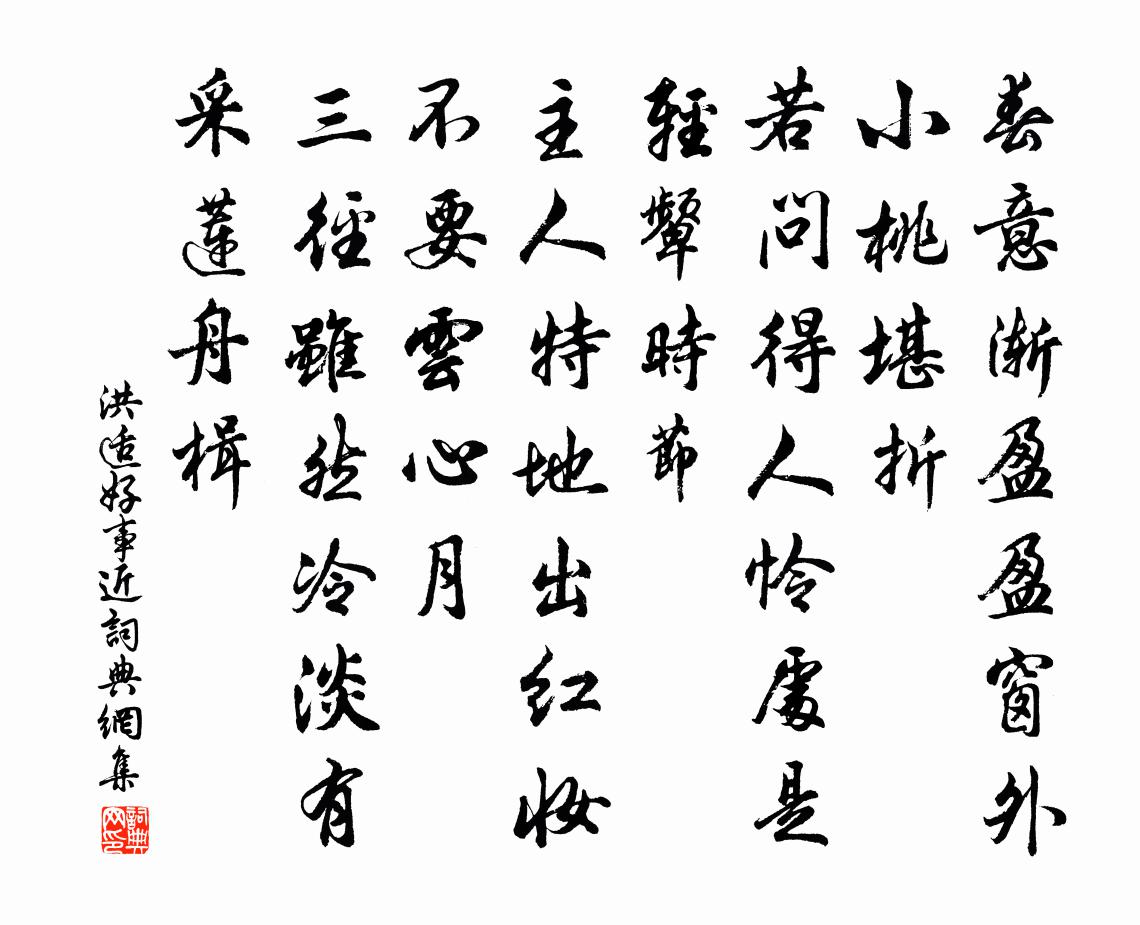 春意漸盈盈窗外
小桃堪折
若問得人憐處是
輕顰時節
主人特地出紅妝
不要雲心月
三徑雖然冷淡有
采蓮舟楫
洪适好事近詞典網集
詞典网印